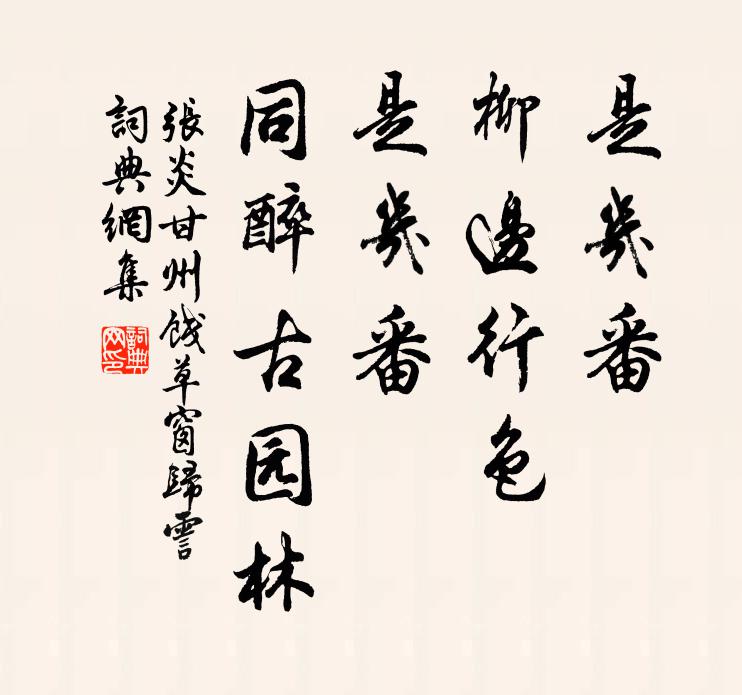 是幾番
柳邊行色
是幾番
同醉古园林
張炎甘州餞草窗歸霅
詞典網集
詞典网印